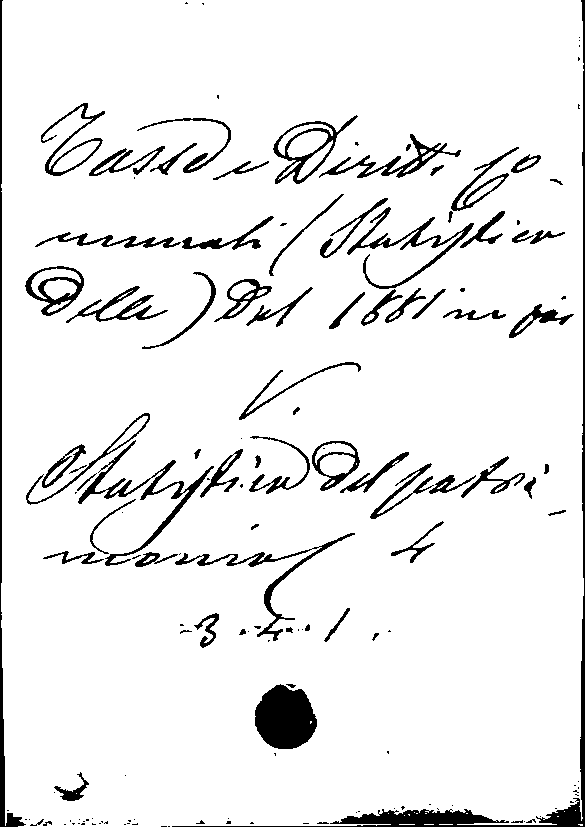 Tasse e Diritti Co-
munali (Statistica
delle) Dal 1881 in poi
V.
Statistica del patri-
monio 4
3.4.1.